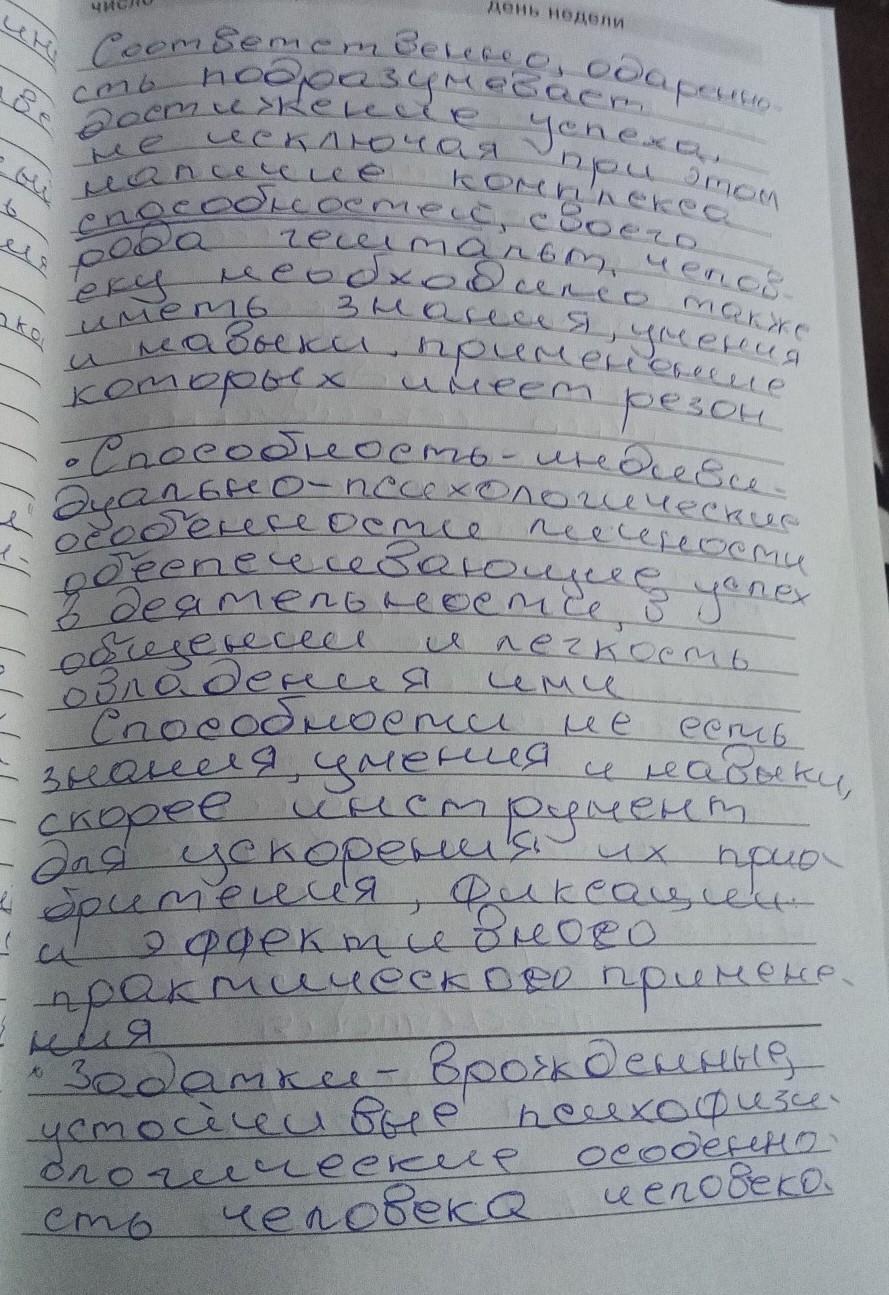 число день недели
Соответственно, одаренно-
сть подразумевает
достижение успеха,
не исключая при этом
наличие комплекса
способностей, своего
рода гештальт, челов-
еку необходимо также
иметь знания, умения
и навыки, применение
которых имеет резон
• Способность - индиви-
дуально-психологические
особенности личности
обеспечивающие успех
в деятельности, в
общении и легкость
овладения ими
Способности не есть
знания, умения и навыки,
скорее инструмент
для ускорения их прио-
бритения, фиксации
и эффективного
практического примене-
ния
• Задатки - врожденные,
устойчивые психофизи-
ологические особенно-
сть человека человека.